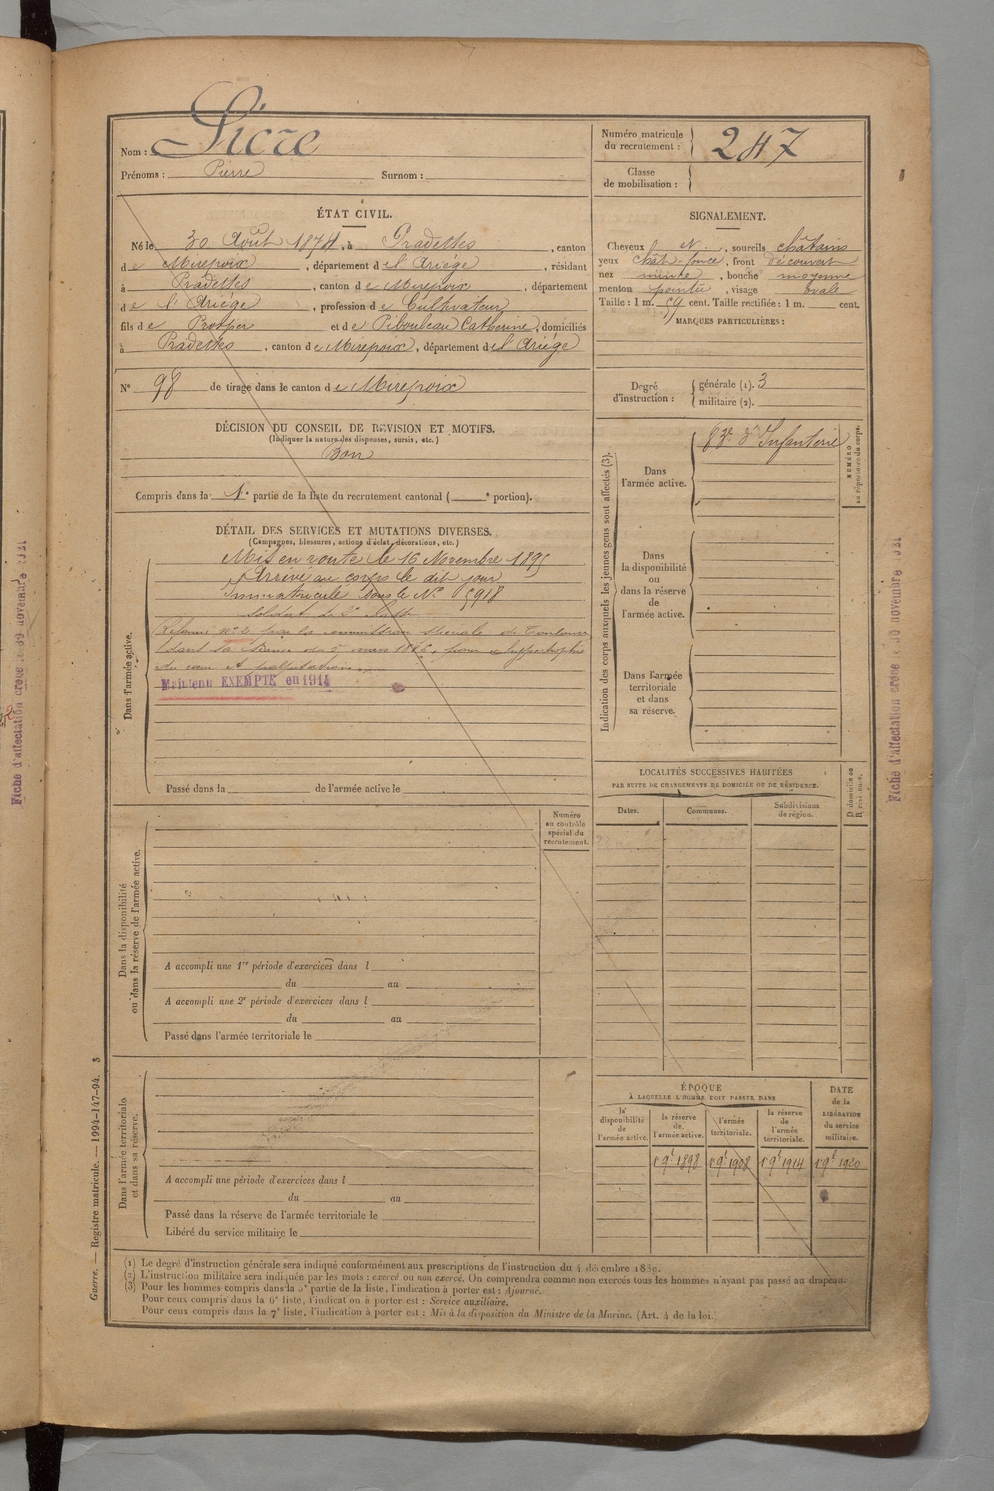 Nom : Sicre
Prénoms : Pierre Surnom :
Numéro matricule du recrutement : 247
Classe de mobilisation :
ÉTAT CIVIL.
Né le 30 Août 1874, à Pradettes, canton
de Mirepoix, département de l'Ariège, résidant
à Pradettes, canton de Mirepoix, département
de l'Ariège, profession de Cultivateur
fils de Prosper et de Pibouleau Catherine, domiciliés
à Pradettes, canton de Mirepoix, département de l'Ariège
N° 98 de tirage dans le canton de Mirepoix
DÉCISION DU CONSEIL DE REVISION ET MOTIFS.
(Indiquer la nature des dispenses, sursis, etc.)
Bon
Compris dans la 1e partie de la liste du recrutement cantonal ( e portion).
SIGNALEMENT.
Cheveux et sourcils châtains
yeux chât-foncé, front découvert
nez mince, bouche moyenne
menton pointu, visage ovale
Taille : 1 m. cent. Taille rectifiée : 1 m. cent.
MARQUES PARTICULIÈRES :
Degré d'instruction : générale (1). 3
militaire (2).
Indication des corps auxquels les jeunes gens sont affectés (3).
Dans l'armée active. d'Infanterie
NUMÉRO au répertoire du corps.
Dans la disponibilité ou dans la réserve de l'armée active.
Dans l'armée territoriale et dans sa réserve.
DÉTAIL DES SERVICES ET MUTATIONS DIVERSES.
(Campagnes, blessures, actions d'éclat, décorations, etc.)
Dans l'armée active.
Mis en route le 16 Novembre 1895
Arrivé au corps le dit jour
Immatriculé sous le N° 5918
Soldat de 2e classe
Réformé n° 2 par la commission spéciale de Toulouse
dans la séance du 5 mars 1896, pour hypertrophie
du cœur et palpitations.
Maintenu EXEMPTÉ en 1914
Passé dans la de l'armée active le
LOCALITÉS SUCCESSIVES HABITÉES
PAR SUITE DE CHANGEMENTS DE DOMICILE OU DE RÉSIDENCE.
Dates. Communes. Subdivisions de région. D. domicile ou R. résidence.
Numéro au contrôle spécial du recrutement.
Dans la disponibilité ou dans la réserve de l'armée active.
A accompli une 1re période d'exercices dans l
du au
A accompli une 2e période d'exercices dans l
du au
Passé dans l'armée territoriale le
Dans l'armée territoriale et dans sa réserve.
A accompli une période d'exercices dans l
du au
Passé dans la réserve de l'armée territoriale le
Libéré du service militaire le
ÉPOQUE
À LAQUELLE L'HOMME DOIT PASSER DANS
la disponibilité de l'armée active. la réserve de l'armée active. l'armée territoriale. la réserve de l'armée territoriale.
DATE de la LIBÉRATION du service militaire.
1898 1908 1914 1920
(1) Le degré d'instruction générale sera indiqué conformément aux prescriptions de l'instruction du 4 décembre 1889.
(2) L'instruction militaire sera indiquée par les mots : exercé ou non exercé. On comprendra comme non exercés tous les hommes n'ayant pas passé au drapeau.
(3) Pour les hommes compris dans la 5e partie de la liste, l'indication à porter est : Ajourné.
Pour ceux compris dans la 6e liste, l'indication à porter est : Service auxiliaire.
Pour ceux compris dans la 7e liste, l'indication à porter est : Mis à la disposition du Ministre de la Marine. (Art. 4 de la loi.)
Guerre. — Registre matricule. — 1994-147-94. 3
Fiche d'affectation créée le 30 novembre 1921
Fiche d'affectation créée le 30 novembre 1921